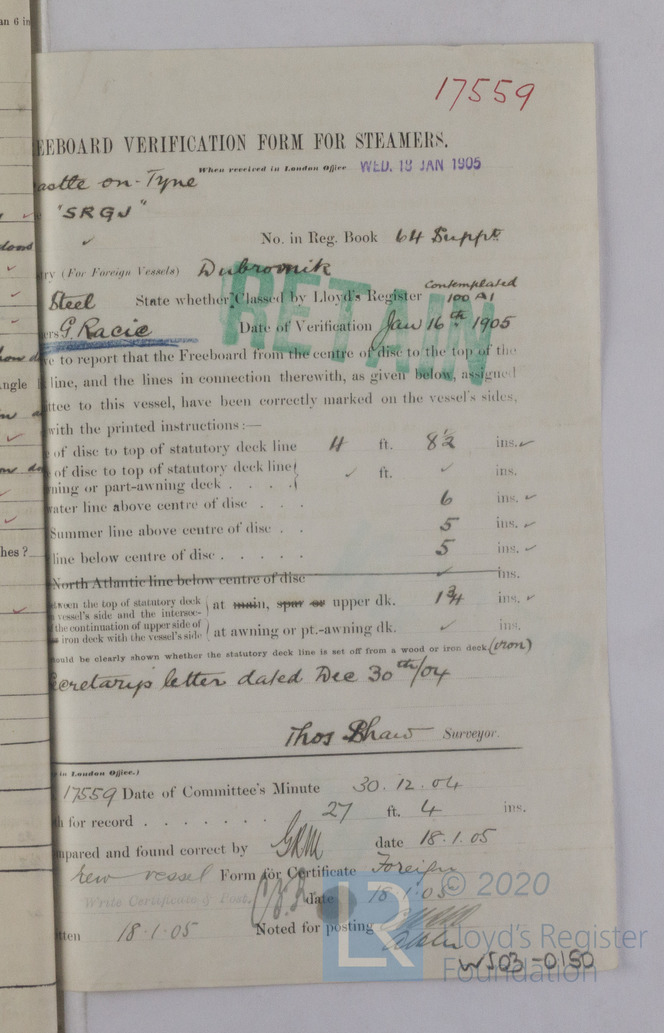 an 6 in
17559
EEBOARD VERIFICATION FORM FOR STEAMERS.
When received in London Office WED. 18 JAN 1905
astle on-Tyne
"SRGJ"
No. in Reg. Book 64 Suppt
try (For Foreign Vessels) Dubrovnik
Contemplated
Steel State whether Classed by Lloyd's Register 100 A1
ers G. Racic Date of Verification Jan 16th 1905
RETAIN
ve to report that the Freeboard from the centre of disc to the top of the
line, and the lines in connection therewith, as given below, assigned
ttee to this vessel, have been correctly marked on the vessel's sides,
with the printed instructions:—
of disc to top of statutory deck line 4 ft. 8½ ins.
of disc to top of statutory deck line ft. ins.
ning or part-awning deck . . . .
water line above centre of disc . . . 6 ins.
Summer line above centre of disc . . 5 ins.
line below centre of disc . . . . . 5 ins.
North Atlantic line below centre of disc ins.
etween the top of statutory deck
vessel's side and the intersec- at main, spar or upper dk. 1¾ ins.
the continuation of upper side of
iron deck with the vessel's side at awning or pt.-awning dk. ins.
ould be clearly shown whether the statutory deck line is set off from a wood or iron deck. (iron)
ecretarys letter dated Dec 30th/04
Thos Shaw Surveyor.
in London Office.)
17559 Date of Committee's Minute 30.12.04
h for record . . . . . . . . 27 ft. 4 ins.
mpared and found correct by GRM date 18.1.05
new vessel Form for Certificate Foreign
Write Certificate & Post. date 18.1.05
tten 18.1.05 Noted for posting
© 2020
LR
Lloyd's Register
Foundation
W503-0150
angle
hes?